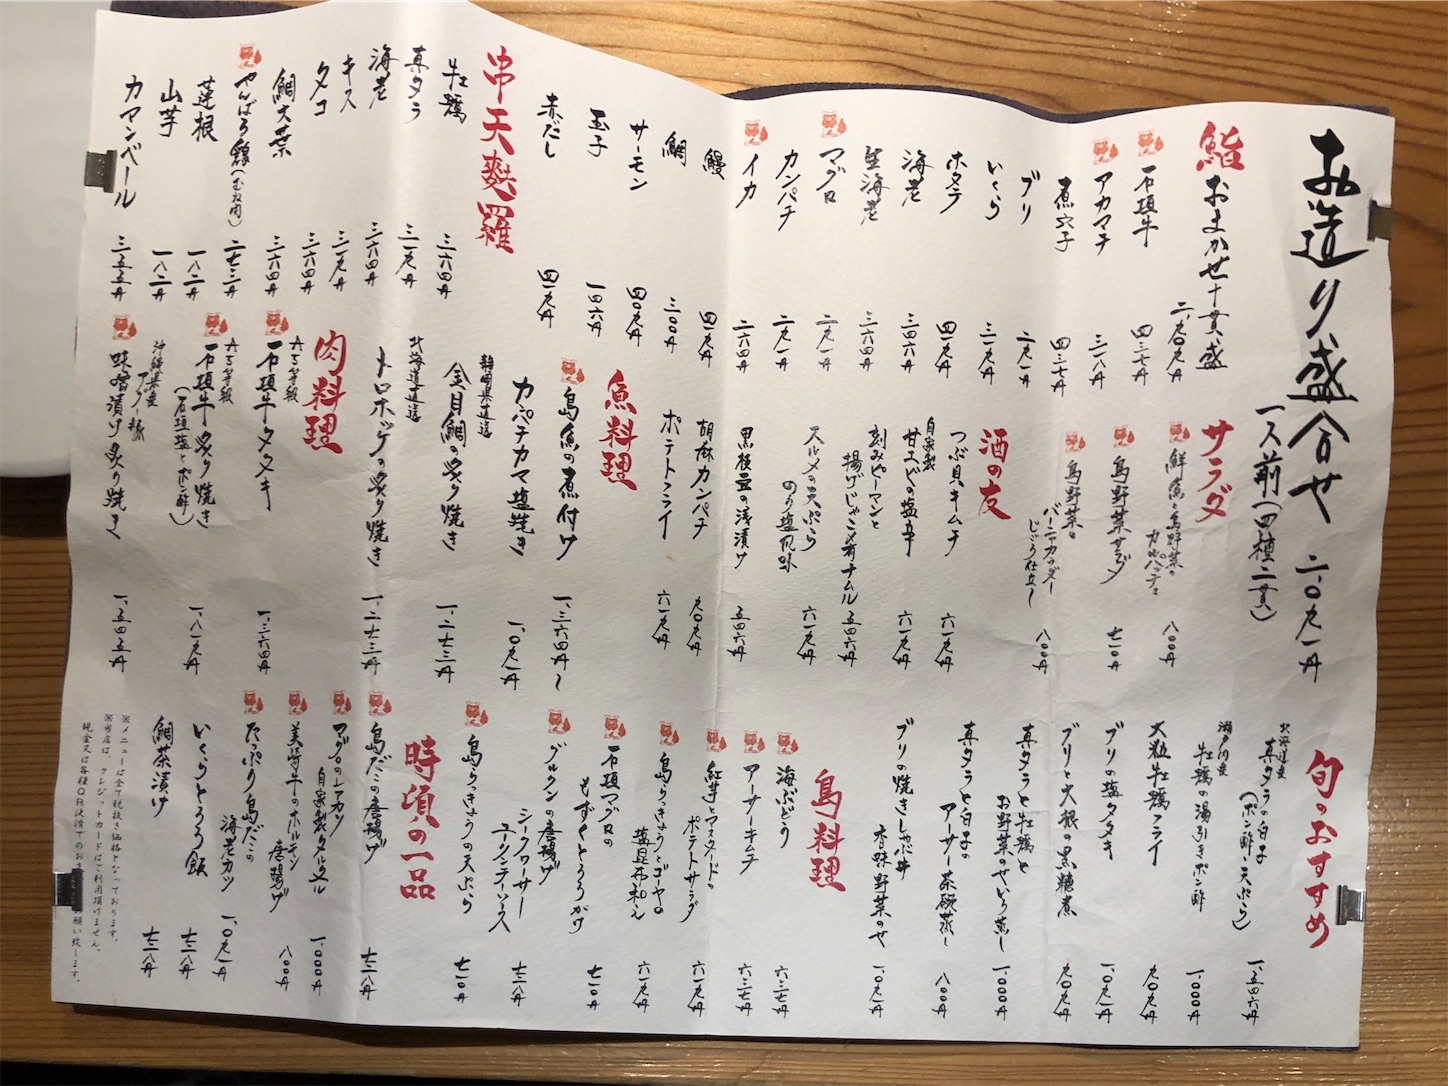 お造り盛合せ 二、〇九一円
一人前(四種二貫)
鮨
おまかせ十貫盛 二、〇〇九円
石垣牛 四三七円
アカマチ 三一八円
煮穴子 四三七円
ブリ 二九一円
いくら 三一九円
ホタテ 四一九円
海老 三四六円
生海老 三六四円
マグロ 二九一円
カンパチ 二九一円
イカ 二六四円
鰻 四一九円
鯛 三〇〇円
サーモン 四〇九円
玉子 一四六円
赤だし 四一九円
串天麩羅
牡蠣 三六四円
真タラ 三一九円
海老 三六四円
キス 三一九円
タコ 三六四円
鯛大葉 三六四円
やんばる鶏(むね肉) 二七三円
蓮根 一八二円
山芋 一八二円
カマンベール 三五五円
サラダ
鮮魚と島野菜の
カルパッチョ 八〇〇円
島野菜サラダ 七一〇円
島野菜の
バーニャカウダー
じじゅう仕立て 八〇〇円
酒の友
つぶ貝キムチ 六一九円
自家製
甘エビの塩辛 六一九円
刻みピーマンと
揚げじゃこの有ナムル 五四六円
スルメの天ぷら
のり塩風味 六一九円
黒枝豆の浅漬け 五四六円
胡麻カンパチ 九〇九円
ポテトフライ 六一九円
魚料理
島魚の煮付け 一、三六四円〜
カンパチカマ塩焼き 一、〇九一円
静岡県直送
金目鯛の炙り焼き 一、二七三円
北海道直送
トロホッケの炙り焼き 一、二七三円
肉料理
A5等級
石垣牛タタキ 一、三六四円
A5等級
石垣牛炙り焼き
(石垣塩とポン酢) 一、八一九円
沖縄県産
アグー豚
味噌漬け炙り焼き 一、五四五円
旬のおすすめ
北海道産
真タラの白子
(ポン酢・天ぷら) 一、五四六円
瀬戸内産
牡蠣の湯引きポン酢 一、〇〇〇円
大粒牡蠣フライ 九〇九円
ブリの塩タタキ 一、〇九一円
ブリと大根の黒糖煮 九〇九円
真タラと牡蠣と
お野菜のせいろ蒸し 一、〇〇〇円
真タラと白子の
アーサー茶碗蒸し 八〇〇円
ブリの焼きしゃぶ丼
香味野菜のせ 一、〇九一円
島料理
海ぶどう 六三七円
アーサーキムチ 六三七円
紅芋とマスタードの
ポテトサラダ 六一九円
島らっきょうとゴーヤの
塩昆布和え 六一九円
石垣マグロの
もずくとろろがけ 七一〇円
グルクンの唐揚げ
シークワーサー
ユーリンチーソース 七二八円
島らっきょうの天ぷら 七一〇円
時頃の一品
島だこの唐揚げ 七二八円
マグロのレアカツ
自家製タルタル 一、〇〇〇円
美崎牛のホルモン
唐揚げ 八〇〇円
たっぷり島だこの
海老カツ 一、〇九一円
いくらとろろ飯 七二八円
鯛茶漬け 七二八円
※メニューは全て税抜き価格となっております。
※当店は、クレジットカードはご利用頂けません。
現金又は各種QR決済でのお 願い致します。